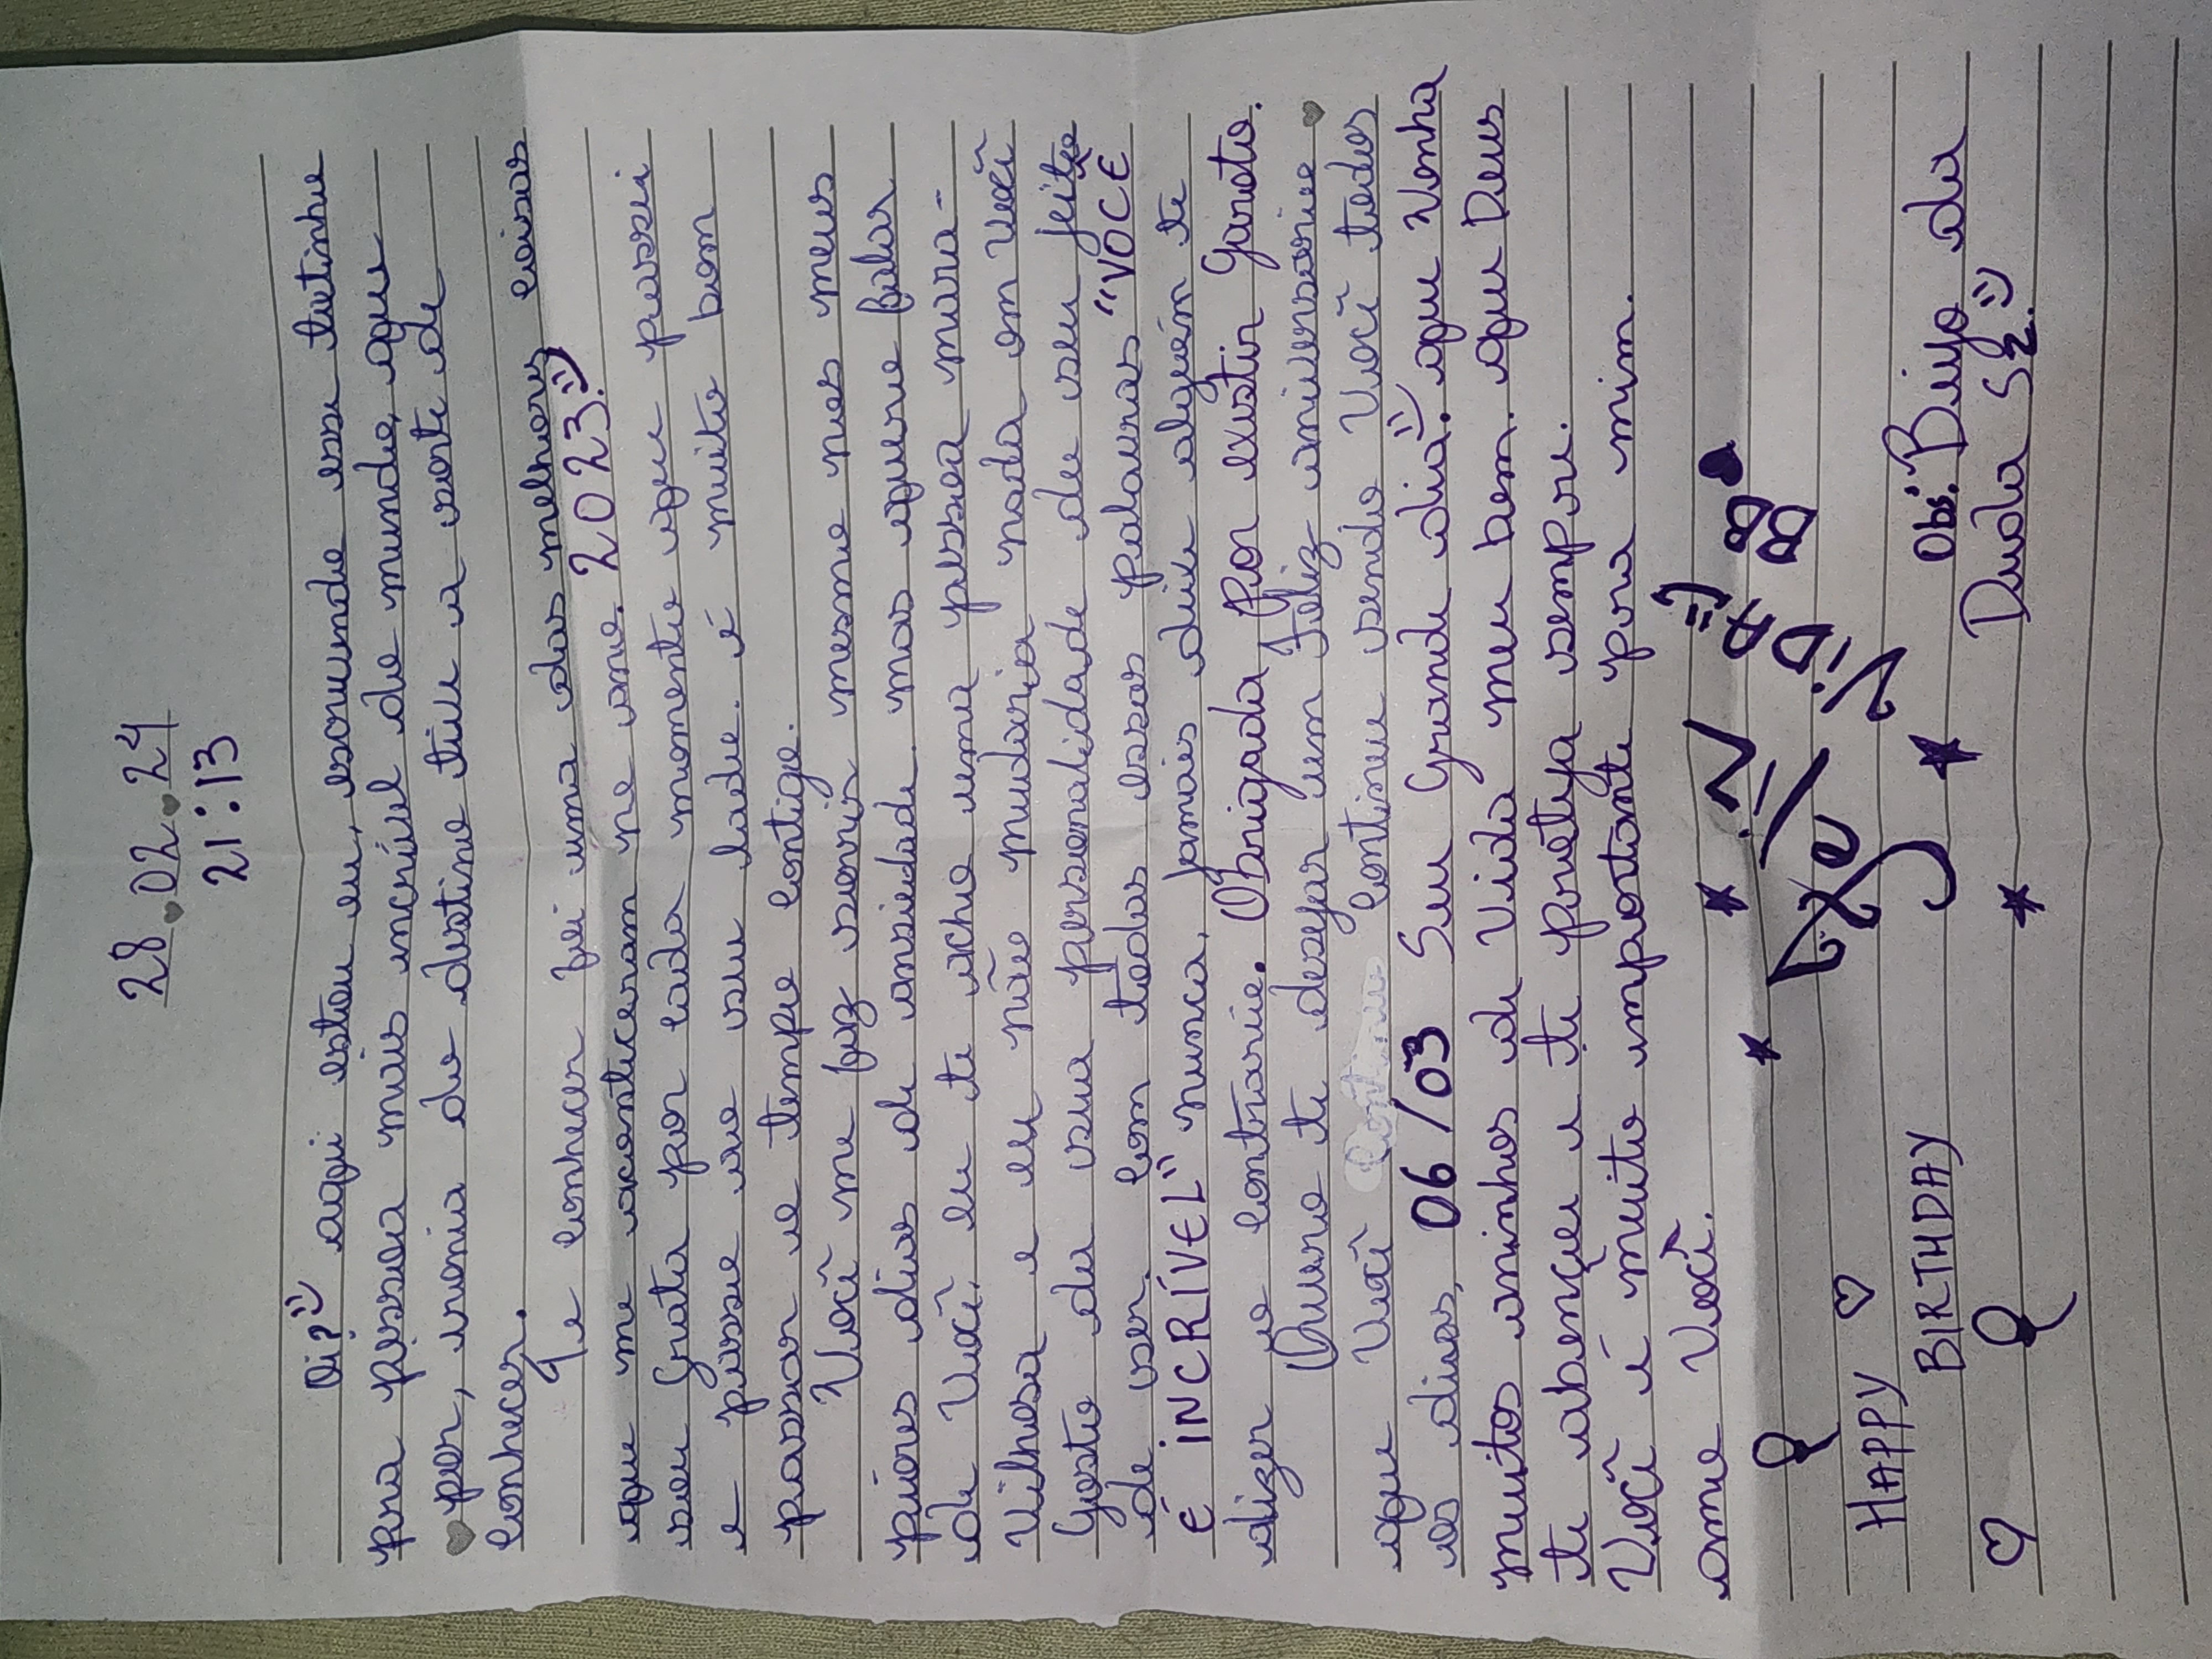 28.02.24
21:13
Oi? aqui estou eu, escrevendo esse textinho
pra pessoa mais incrível do mundo, que
por, ironia do destino tive a sorte de
conhecer.
Te conhecer foi uma das melhores coisas
que me aconteceram no ano. 2023.
sou Grata por cada momento que passei
e posso ao seu lado. é muito bom
passar o tempo contigo.
Você me faz sorrir mesmo nos meus
piores dias de ansiedade. mas quero falar
de você. eu te acho uma pessoa mara-
vilhosa e eu não mudaria nada em você
Gosto da sua personalidade do seu jeito
de ser. com todas essas palavras "VOCÊ
É INCRÍVEL" nunca, jamais deixe alguém te
dizer o contrário. Obrigada por existir Garoto.
Quero te desejar um Feliz aniversário
que você continue sendo você todos
os dias, 06/03 Seu Grande dia. que venha
muitos aninhos de vida meu bem. que Deus
te abençoe e te proteja sempre.
Você é muito importante pra mim.
amo você.
HAPPY
BIRTHDAY
ViDA
BB
Obs: Beijo da
Duda S2